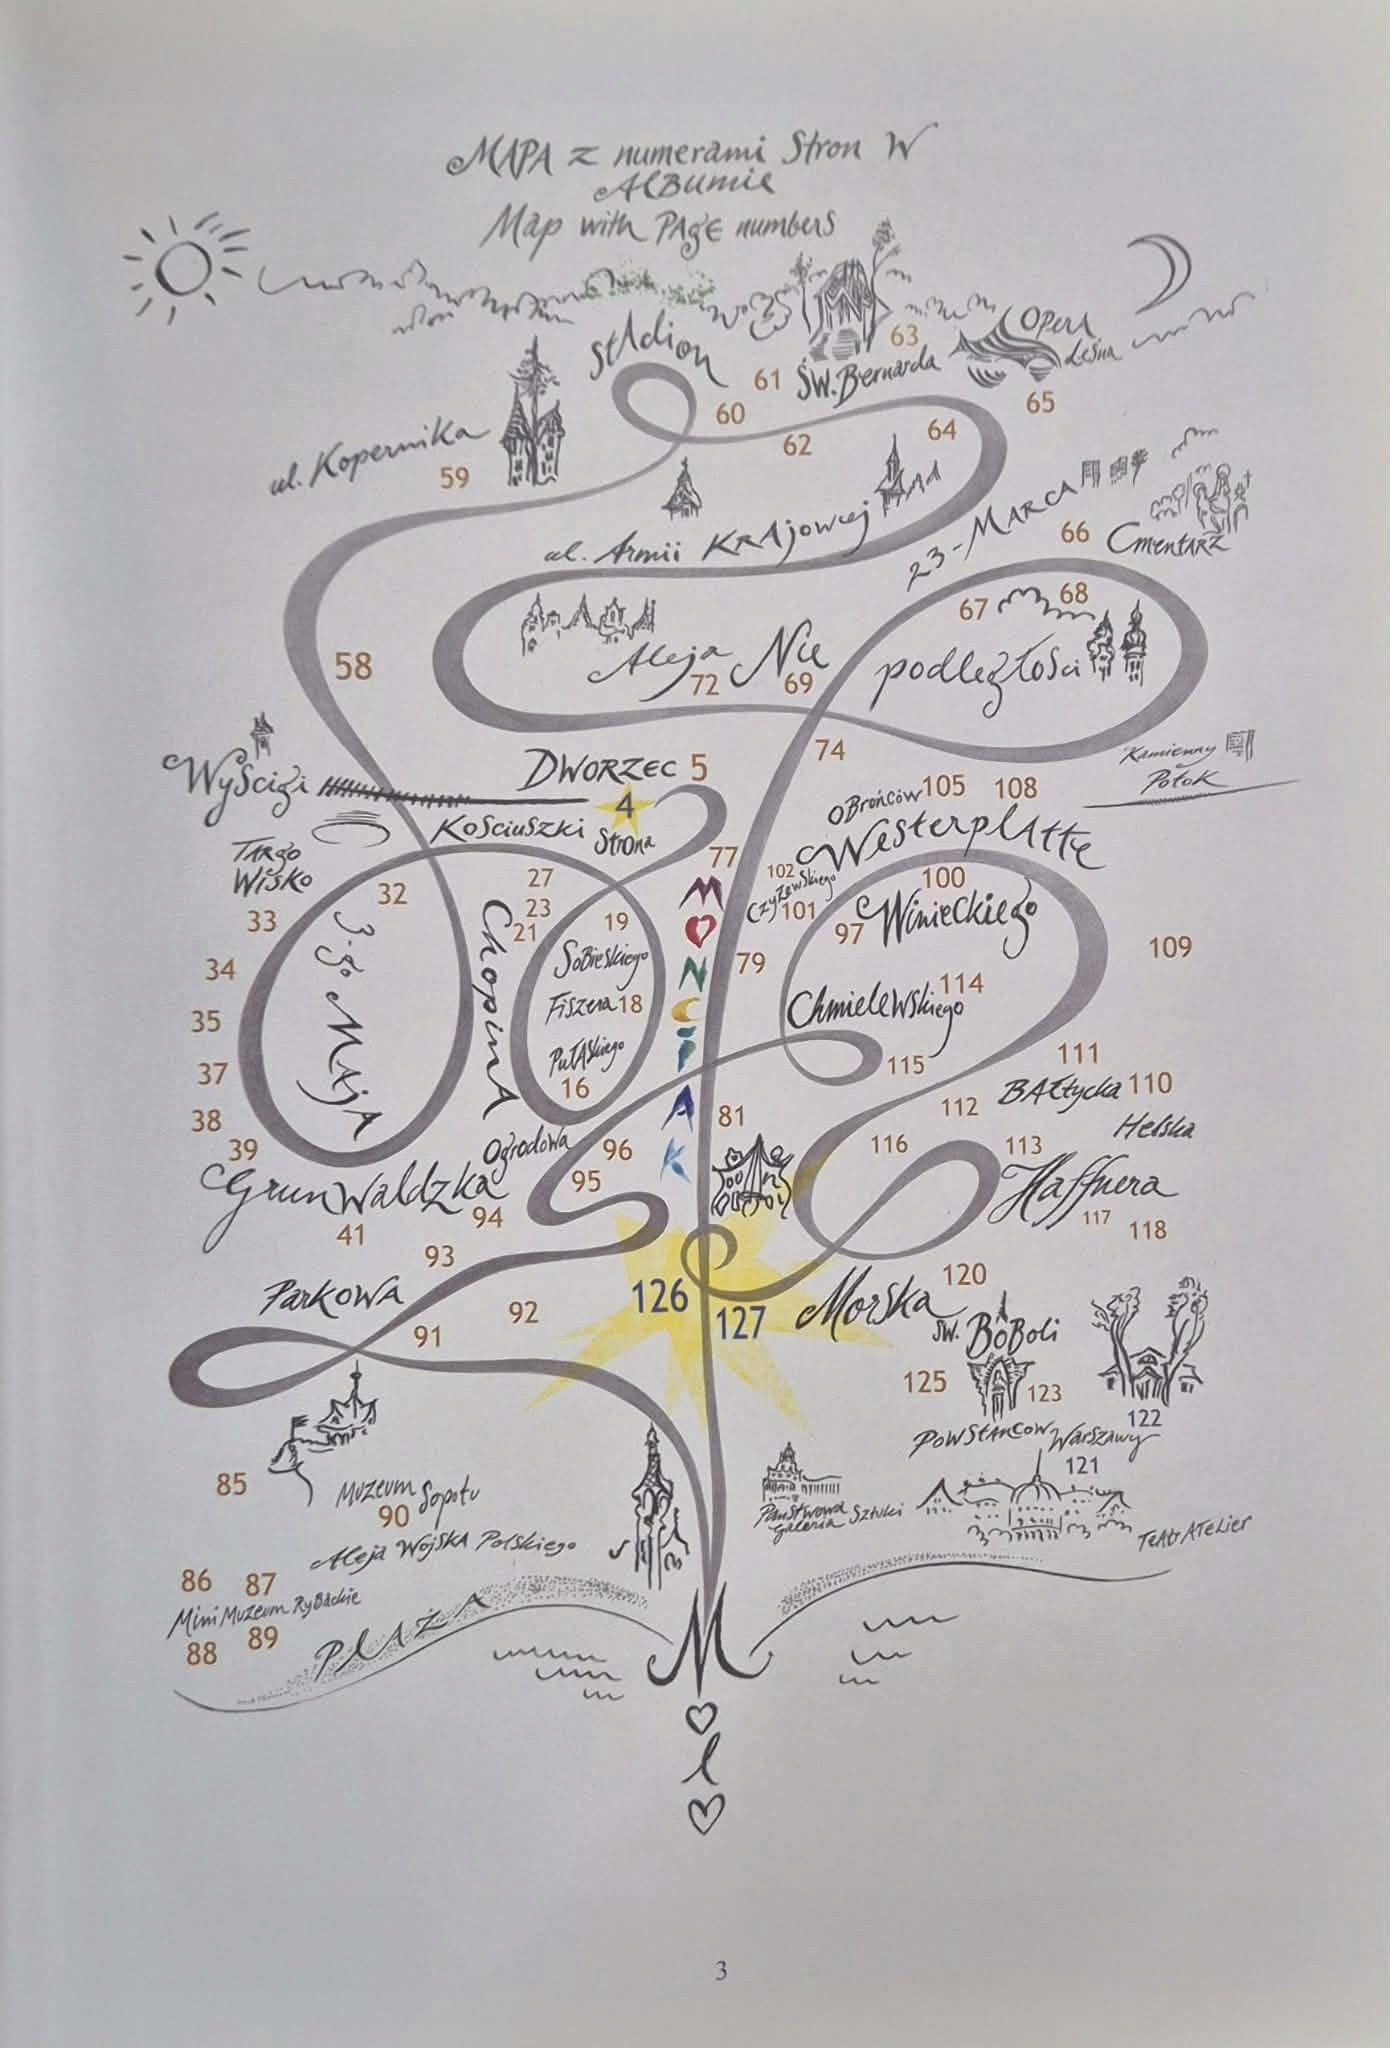 MAPA z numerami Stron W
AlBumie
Map with PAgE numbers
63
Opera
Leśna
Stadion
61
Św. Bernarda
65
60
64
62
ul. Kopernika
59
23-MARCA
66
Cmentarz
ul. Armii KRAjowej
67
68
58
Aleja Nie podległości
72
69
74
Kamienny
Potok
Wyścigi
DWORZEC 5
4
Strona
Kościuszki
OBrońców 105 108
Westerplatte
TARgo
Wisko
77
102
Czyżewskiego
101
100
Winieckiego
97
27
23
21
32
33
19
3-go MAjA
ChopinA
Sobieskiego
Fiszera 18
Pułaskiego
16
MONCIAK
79
109
34
35
37
38
39
114
Chmielewskiego
115
111
BAłtycka 110
112
Helska
81
Ogrodowa
96
95
116
113
Haffnera
Grunwaldzka
94
41
117
118
93
PArkowa
92
91
126
127
Morska
120
św. BoBoli
125
123
122
Powstańców Warszawy
121
85
Muzeum Sopotu
90
Państwowa
Galeria Sztuki
Teatr ATelier
Aleja Wojska Polskiego
86 87
Mini Muzeum Rybackie
88 89
PlAŻA
M
l
3